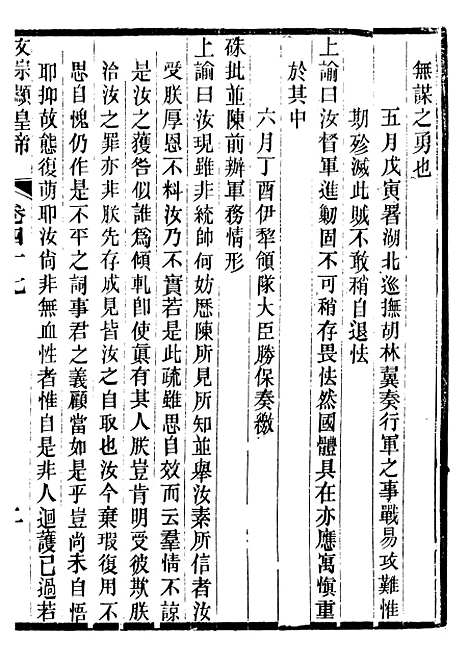 無謀之勇也
五月戊寅署湖北巡撫胡林翼奏行軍之事戰易攻難惟
期殄滅此賊不敢稍自退怯
上諭曰汝督軍進勦固不可稍存畏怯然國體具在亦應寓慎重
於其中
六月丁酉伊犂領隊大臣勝保奏繳
硃批並陳前辦軍務情形
上諭曰汝現雖非統帥何妨歷陳所見所知並舉汝素所信者汝
受朕厚恩不料汝乃不實若是此疏雖思自效而云羣情不諒
是汝之獲咎似誰爲傾軋卽使眞有其人朕豈肯明受彼欺朕
治汝之罪亦非朕先存成見皆汝之自取也汝今棄瑕復用不
思自愧仍作是不平之詞事君之義顧當如是乎豈尚未自悟
耶抑故態復萌耶汝尙非無血性者惟自是非人迴護已過若
文宗顯皇帝 卷四十七 二